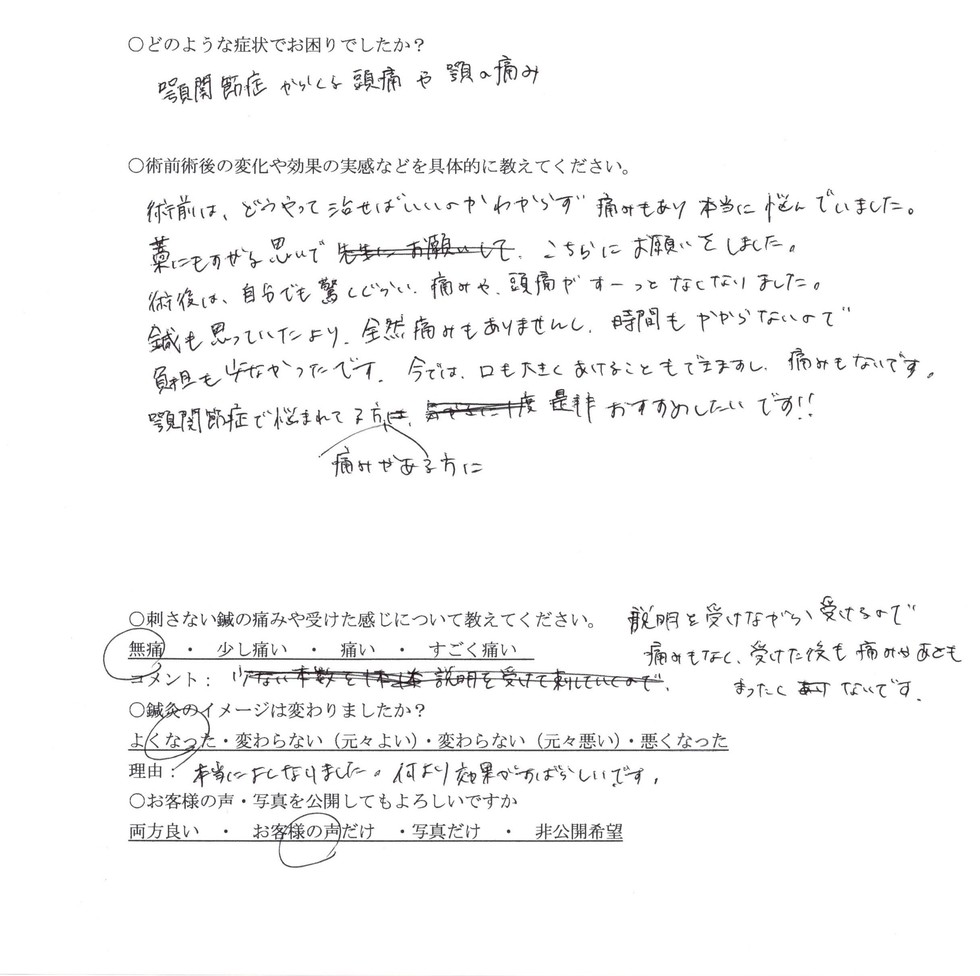 ○どのような症状でお困りでしたか？
顎関節症からくる頭痛や顎の痛み
○術前術後の変化や効果の実感などを具体的に教えてください。
術前は、どうやって治せばいいのかわからず痛みもあり本当に悩んでいました。
藁にもすがる思いで先生にお願いして、こちらにお願いをしました。
術後は、自分でも驚くぐらい、痛みや、頭痛がすーっとなくなりました。
鍼も思っていたより、全然痛みもありませんし、時間もかからないので
負担も少なかったです。今では、口も大きくあけることもできますし、痛みもないです。
顎関節症で悩まれてる方は、度是非おすすめしたいです!!
痛みやある方に
○刺さない鍼の痛みや受けた感じについて教えてください。
説明を受けながら受けるので
無痛　・　少し痛い　・　痛い　・　すごく痛い
痛みもなく、受けた後も痛みやあとも
コメント：少ない本数を説明を受けて刺していくので、
まったくあけないです。
○鍼灸のイメージは変わりましたか？
よくなった・変わらない（元々よい）・変わらない（元々悪い）・悪くなった
理由：本当によくなりました。何より効果がすばらしいです。
○お客様の声・写真を公開してもよろしいですか
両方良い　・　お客様の声だけ　・写真だけ　・　非公開希望